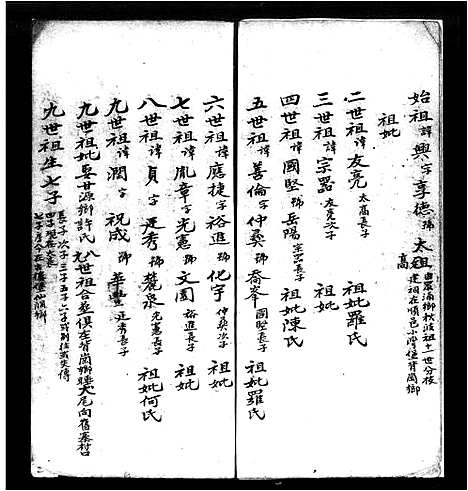 始祖諱興字享德號太祖
高
由霖涌鄉秋波祖十一世分枝
建祖在順邑小灣堡背崗鄉
祖妣
二世祖諱友亮 太高長子 祖妣羅氏
三世祖諱宗器 友亮次子 祖妣
四世祖諱國堅號岳陽 宗器長子 祖妣陳氏
五世祖諱善倫字仲彝號喬峯 國堅長子 祖妣羅氏
六世祖諱應捷字裕進號化宇 仲彝次子 祖妣
七世祖諱胤章字光憲號文園 裕進長子 祖妣
八世祖諱貞字廷秀號蘭泉 光憲長子 祖妣何氏
九世祖諱潤字祝成號華豐 廷秀長子
九世祖妣娶甘源鄉許氏 八九世祖合塟俱在背崗鄉 大尾向舊寨村口
九世祖生七子
長子次子三子五子六子 別往 失傳
四子現在 
七子 今在古樓堡仙涌鄉